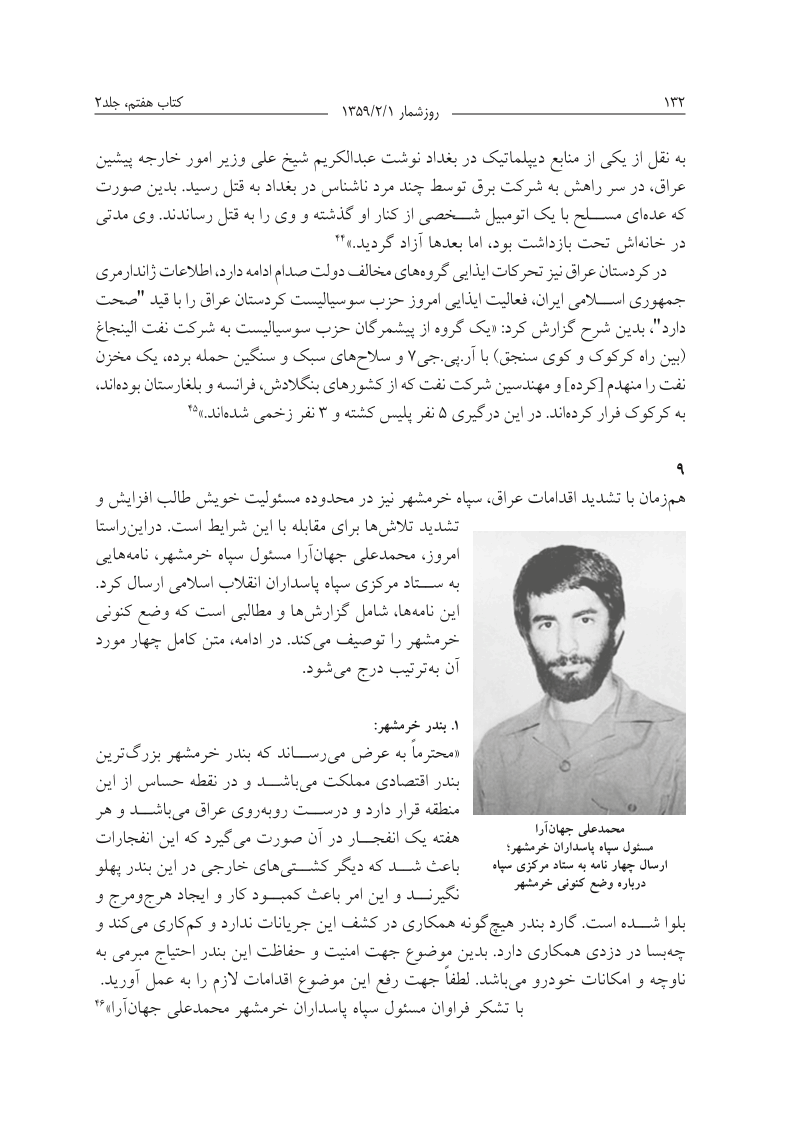 ۱۳۲
روزشمار ۱۳۵۹/۲/۱
کتاب هفتم، جلد۲
به نقل از یکی از منابع دیپلماتیک در بغداد نوشت عبدالکریم شیخ علی وزیر امور خارجه پیشین
عراق، در سر راهش به شرکت برق توسط چند مرد ناشناس در بغداد به قتل رسید. بدین صورت
که عده‌ای مسلح با یک اتومبیل شخصی از کنار او گذشته و وی را به قتل رساندند. وی مدتی
در خانه‌اش تحت بازداشت بود، اما بعدها آزاد گردید.»۴۴
در کردستان عراق نیز تحرکات ایذایی گروه‌های مخالف دولت صدام ادامه دارد، اطلاعات ژاندارمری
جمهوری اسلامی ایران، فعالیت ایذایی امروز حزب سوسیالیست کردستان عراق را با قید "صحت
دارد"، بدین شرح گزارش کرد: «یک گروه از پیشمرگان حزب سوسیالیست به شرکت نفت الینجاغ
(بین راه کرکوک و کوی سنجق) با آر.پی.جی۷ و سلاح‌های سبک و سنگین حمله برده، یک مخزن
نفت را منهدم [کرده] و مهندسین شرکت نفت که از کشورهای بنگلادش، فرانسه و بلغارستان بوده‌اند،
به کرکوک فرار کرده‌اند. در این درگیری ۵ نفر پلیس کشته و ۳ نفر زخمی شده‌اند.»۴۵
۹
هم‌زمان با تشدید اقدامات عراق، سپاه خرمشهر نیز در محدوده مسئولیت خویش طالب افزایش و
تشدید تلاش‌ها برای مقابله با این شرایط است. دراین‌راستا
امروز، محمدعلی جهان‌آرا مسئول سپاه خرمشهر، نامه‌هایی
به ستاد مرکزی سپاه پاسداران انقلاب اسلامی ارسال کرد.
این نامه‌ها، شامل گزارش‌ها و مطالبی است که وضع کنونی
خرمشهر را توصیف می‌کند. در ادامه، متن کامل چهار مورد
آن به‌ترتیب درج می‌شود.
۱. بندر خرمشهر:
«محترماً به عرض می‌رساند که بندر خرمشهر بزرگ‌ترین
بندر اقتصادی مملکت می‌باشد و در نقطه حساس از این
منطقه قرار دارد و درست روبه‌روی عراق می‌باشد و هر
هفته یک انفجار در آن صورت می‌گیرد که این انفجارات
باعث شد که دیگر کشتی‌های خارجی در این بندر پهلو
نگیرند و این امر باعث کمبود کار و ایجاد هرج‌ومرج و
محمدعلی جهان‌آرا
مسئول سپاه پاسداران خرمشهر؛
ارسال چهار نامه به ستاد مرکزی سپاه
درباره وضع کنونی خرمشهر
بلوا شده است. گارد بندر هیچ‌گونه همکاری در کشف این جریانات ندارد و کم‌کاری می‌کند و
چه‌بسا در دزدی همکاری دارد. بدین موضوع جهت امنیت و حفاظت این بندر احتیاج مبرمی به
ناوچه و امکانات خودرو می‌باشد. لطفاً جهت رفع این موضوع اقدامات لازم را به عمل آورید.
با تشکر فراوان مسئول سپاه پاسداران خرمشهر محمدعلی جهان‌آرا»۴۶